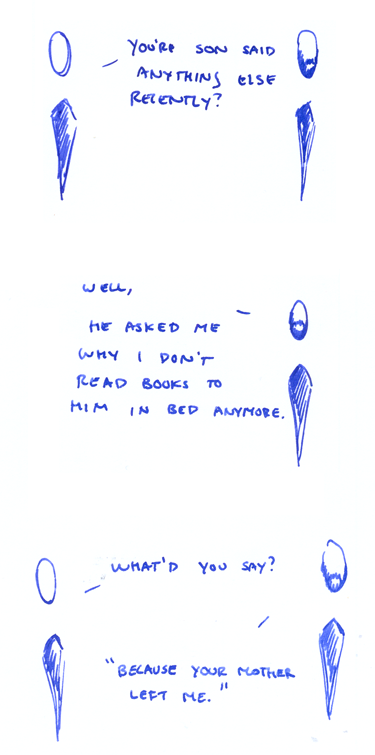 YOU'RE SON SAID
ANYTHING ELSE
RECENTLY?
WELL,
HE ASKED ME
WHY I DON'T
READ BOOKS TO
HIM IN BED ANYMORE.
WHAT'D YOU SAY?
"BECAUSE YOUR MOTHER
LEFT ME."